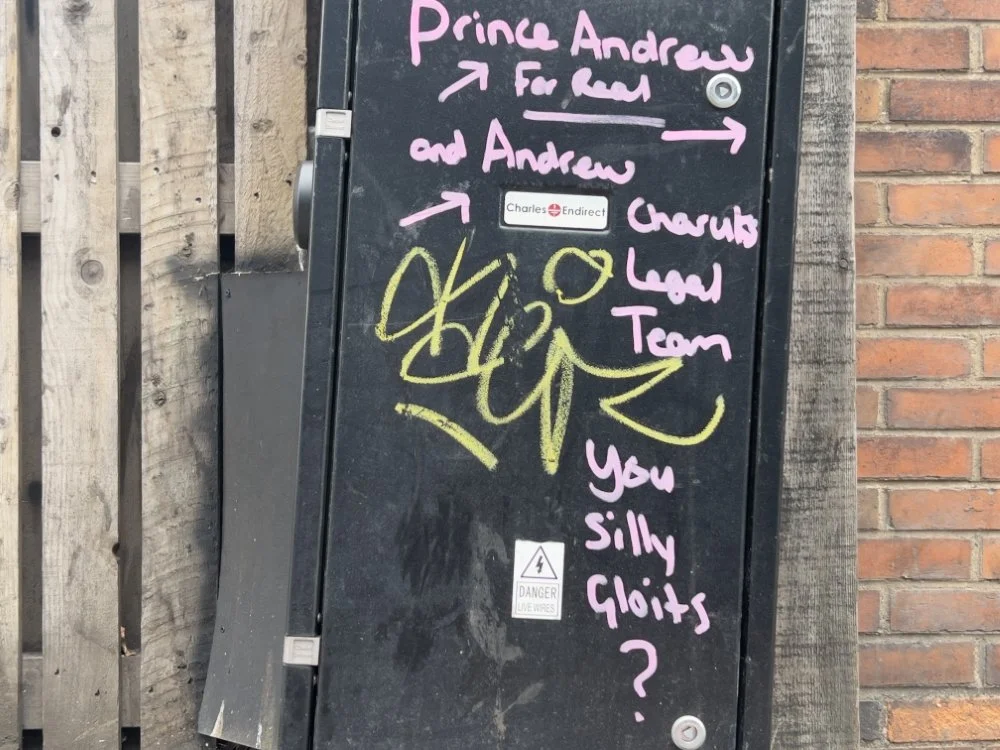 Prince Andrew
For Real
and Andrew
Charles Endirect
Charuts
Legal
Team
You
Silly
Gloits
?
DANGER
LIVE WIRES